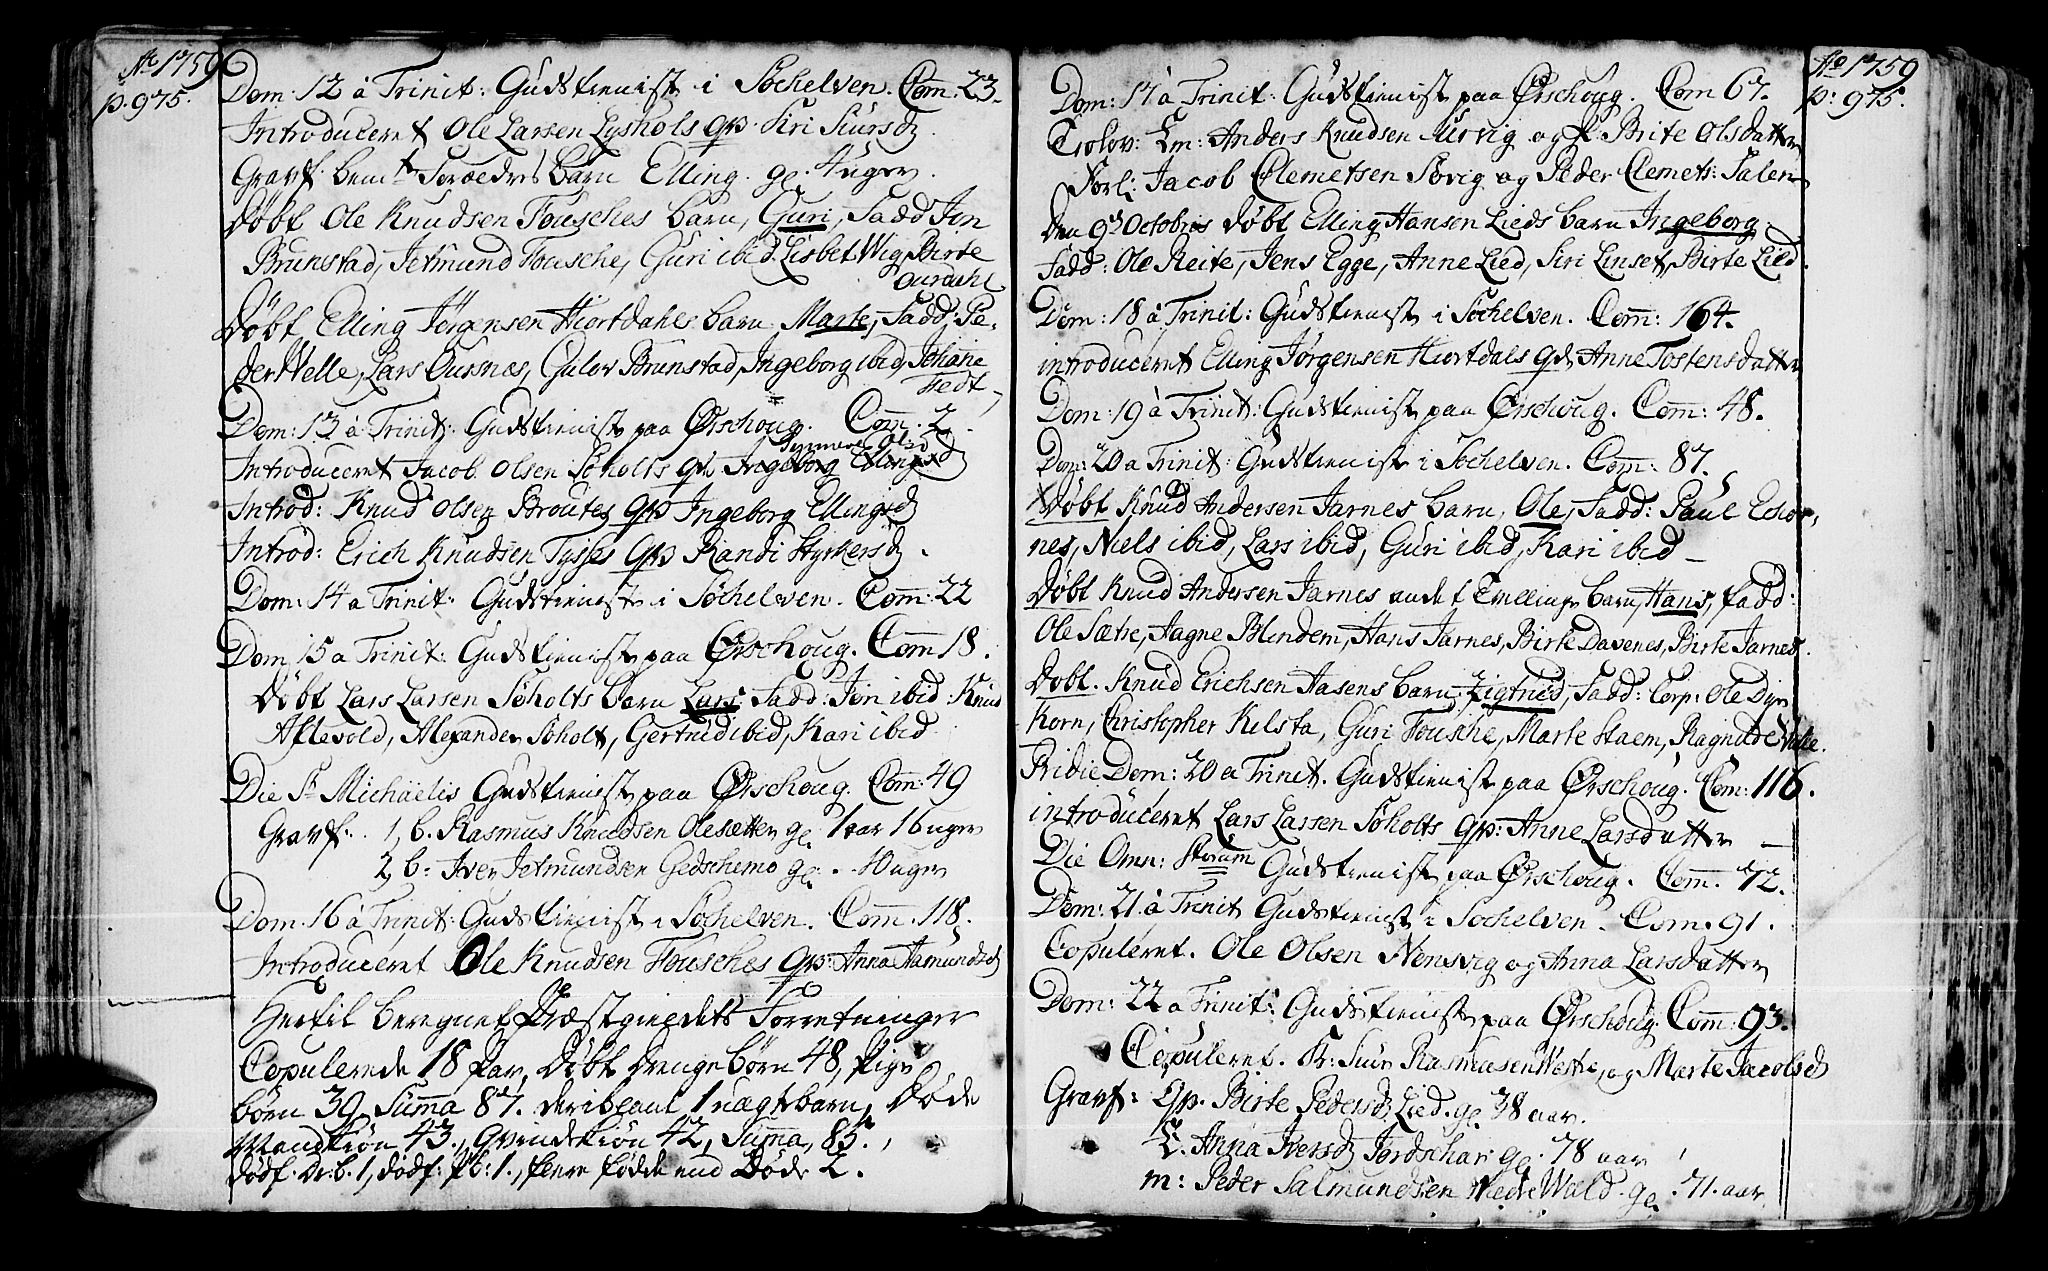 Aō 1759
p. 975.
Dom. 12 à Trinit: Gudstienist i Sochelven. Com: 23.
Introduceret Ole Larsen Lyshols qv. Siri Siursd
Gravf. bem.te Foræedres barn Elling. gl. 4 uger.
Døbt Ole Knudsen Fousches barn, Guri, Fadd Jon
Brunstad, Jetmund Fousche, Guri ibid. Lisbet Wig, Birte
Øurdahl
Døbt Elling Jørgensen Hiortdahls barn Marte, Fadd: Pe-
der Welle, Lars Øursnæs, Gulov Brunstad, Ingeborg ibid, Johane
Tredt,
Dom: 13 à Trinit: Gudstienist paa Ørschoug. Com. 2.
Introduceret Jacob Olsen Søholts qv. Ingeborg Ellingsd
Introd: Knud Olsen Broutes qv. Ingeborg Ellingsd
Introd: Erich Knudsen Tysses qv. Randi Styrkersd.
Dom: 14 a Trinit: Gudstienist i Sochelven. Com: 22
Dom. 15 a Trinit: Gudstienist paa Ørschoug. Com 18.
Døbt Lars Larsen Søholts barn Lars. Fadd: Jon ibid. Knud
Aflevold, Alexander Søholt, Gertrud ibid, Kari ibid.
Die St. Michaelis Gudstienist paa Ørschoug. Com: 49
Gravf: 1, b. Rasmus Knudsen Olesætter gl. 1 aar 16 uger
2, b: Iver Jetmundsen Gedschemo gl: 10 uger
Dom. 16 à Trinit: Gudstienist i Sochelven. Com. 118.
Introduceret Ole Knudsen Fousches qv: Anna Aamundsd
Hertil beregnet Præstegieldets Forretninger
Copulerede 18 Par, Døbt drengebørn 48, Pige
børn 39, Summa 87. deriblant 1 uægte barn, Døde
Mandkiøn 43., Qvindekiøn 42, Summa, 85.,
dødf. Dr.b. 1, dødf: P.b: 1., flere fødde end Døde 2.
Aō 1759
p: 975.
Dom: 17 à Trinit: Gudstienist paa Ørschoug. Com 67.
Trolov: Em: Anders Knudsen Urvig og P. Brite Olsdatter
Forl: Jacob Clemetsen Søvig og Peder Clemets: Salen
den 9de Octobris døbt Elling Hansen Lieds barn Ingeborg.
Fadd: Ole Reite, Jens Egge, Anne Lied, Siri Linset, Birte Lied.
Dom: 18 à Trinit: Gudstienist i Sochelven. Com: 164.
introduceret Elling Jørgensen Hiortdals qv. Anne Tostensdatter
Dom: 19 à Trinit: Gudstienist paa Ørschoug. Com: 48.
Dom: 20 a Trinit: Gudstienist i Sochelven. Com: 87.
Døbt Knud Andersen Jarnes barn, Ole, Fadd: Paul Echor-
nes, Niels ibid, Lars ibid, Guri ibid, Kari ibid
Døbt Knud Andersen Jarnes andet Tvillings barn, Hans, fadd:
Ole Sætre, Hans Jarnes, Birte Davenes, Birte Jarnes.
Døbt. Knud Erichsen Aasens barn, Zigtrud, Fadd: Corp: Ole Dyr-
Korn, Christopher Kilsta, Guri Fousche, Marte Staem, Ragnilde
Pridie Dom: 20 a Trinit. Gudstienist paa Ørschoug. Com: 116.
introduceret Lars Larsen Søholts qv: Anne Larsdatter
Die Omn: Storum Gudstienist paa Ørschoug. Com. 72.
Dom: 21. à Trinit Gudstienist i Sochelven. Com. 91.
Copuleret. Ole Olsen Nensvig og Anna Larsdatter
Dom: 22 a Trinit: Gudstienist paa Ørschoug. Com: 93.
Copuleret. K: Siur Rasmusen og Marte Jacobsd
Gravf: Qv. Birte Pedersd Lied. gl 38 aar.
E. Anna Iversd Jordschar gl. 78 aar
m: Peder Salmundsen Nedre Wold. gl. 71. aar